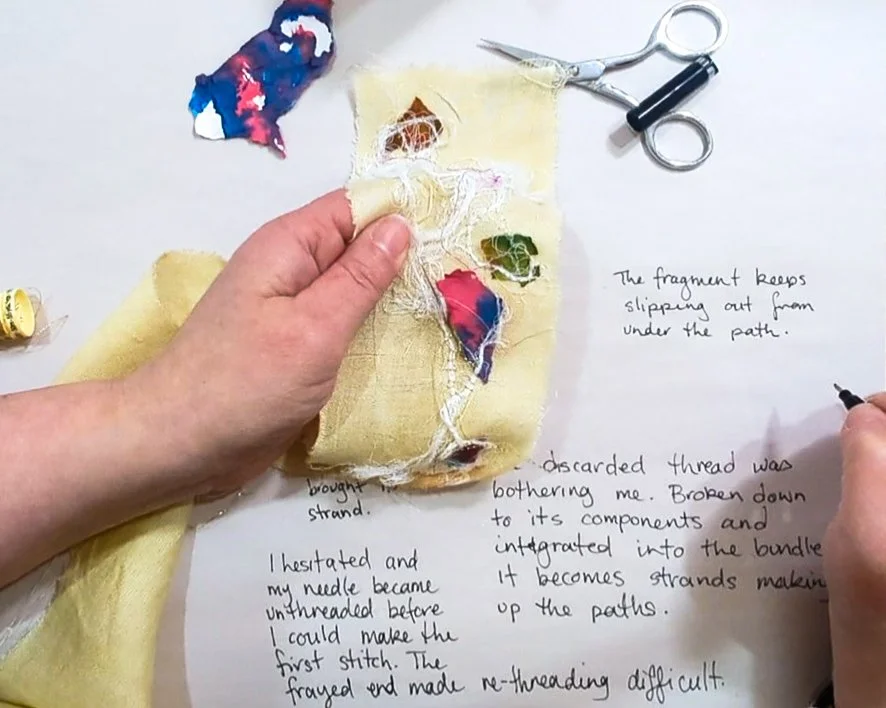 The fragment keeps
slipping out from
under the path.
discarded thread was
bothering me. Broken down
to its components and
integrated into the bundle
it becomes strands making
up the paths.
brought
strand.
I hesitated and
my needle became
unthreaded before
I could make the
first stitch. The
frayed end made re-threading difficult.